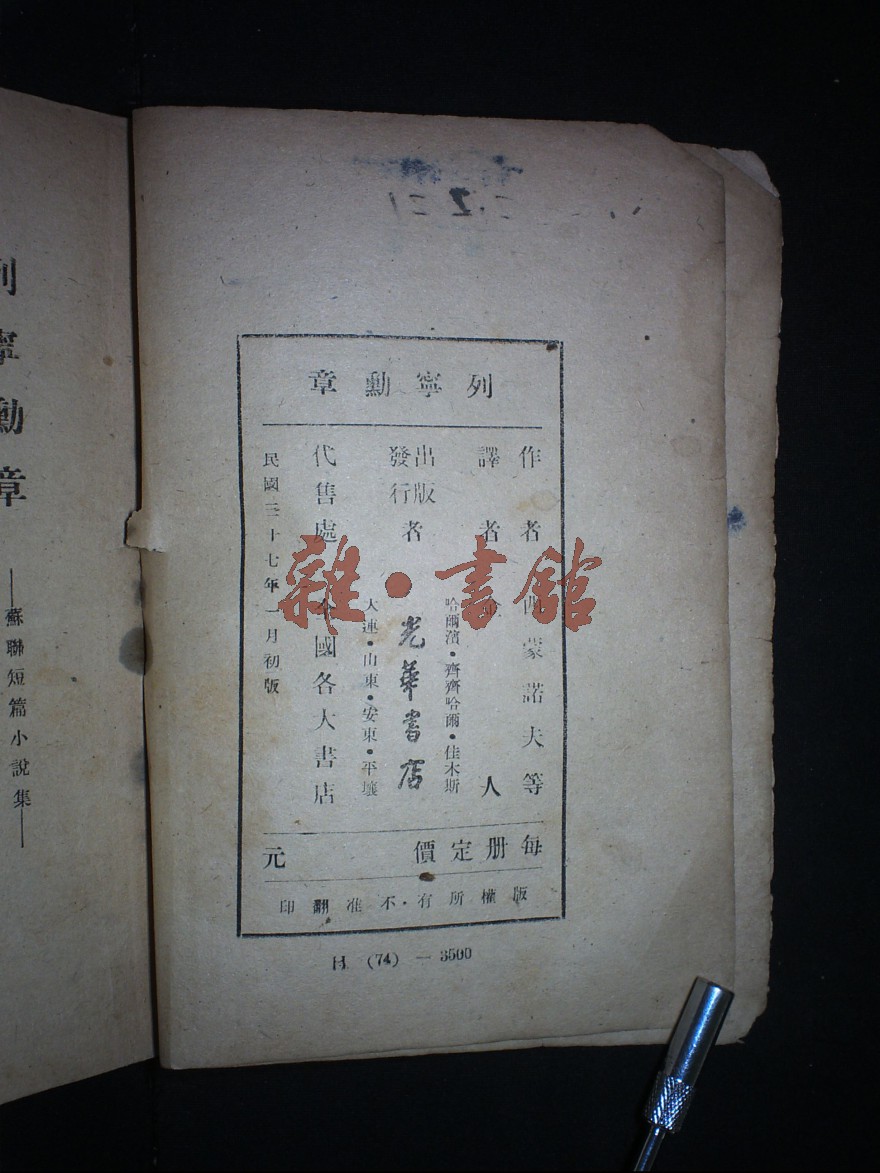 列寧勳章
作者 西蒙諾夫等
譯者 金人
出版
發行者
哈爾濱・齊齊哈爾・佳木斯
光華書店
大連・山東・安東・平壤
代售處 全國各大書店
民國三十七年一月初版
每册定價 元
版權所有・不准翻印
H. (74) — 3500
列寧勳章
——蘇聯短篇小說集——
雜・書館